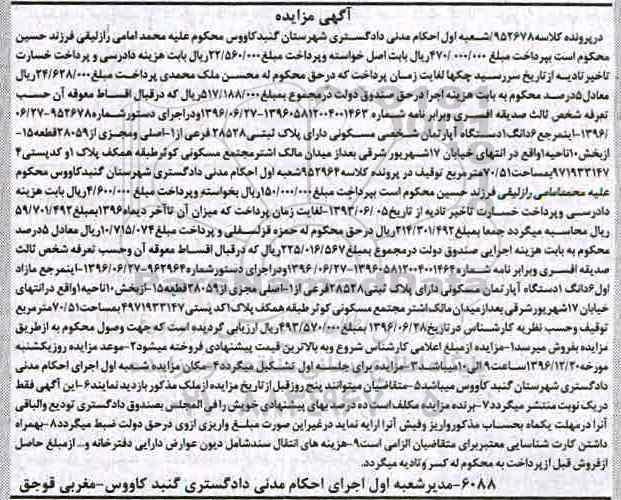 آگهی مزایده
درپرونده کلاسه ۹۵۲۶۷۸/شعبه اول احکام مدنی دادگستری شهرستان گنبدکاووس محکوم علیه محمد امامی رازلیقی فرزند حسین
محکوم است بپرداخت مبلغ ۴۷۰/۰۰۰/۰۰۰ریال بابت اصل خواسته وپرداخت مبلغ ۲۲/۵۶۰/۰۰۰ریال بابت هزینه دادرسی و پرداخت خسارت
تاخیر تادیه از تاریخ سررسید چکها لغایت زمان پرداخت که درحق محکوم له محسن ملک محمدی پرداخت مبلغ ۲۴/۶۲۸/۰۰۰ریال
معادل ۵درصد محکوم به بابت هزینه اجرا درحق صندوق دولت درمجموع بمبلغ ۵۱۷/۱۸۸/۰۰۰ریال که درقبال اقساط معوقه آن حسب
تعرفه شخص ثالث صدیقه افسری وبرابر نامه شماره ۱۳۹۶۰۵۸۱۲۰۰۴۰۰۱۴۶۳-۱۳۹۶/۰۶/۲۷ودراجرای دستورشماره ۹۵۲۶۷۸-۰۶/۲۷
/۱۳۹۶-اینمرجع ۶دانگ ۱دستگاه آپارتمان شخصی مسکونی دارای پلاک ثبتی ۲۸۵۲۸فرعی از۱-اصلی ومجزی از۲۸۰۵۹قطعه۱۵-
ازبخش۱۰ناحیه۱واقع در انتهای خیابان ۱۷شهریور شرقی بعداز میدان مالک اشترمجتمع مسکونی کوثرطبقه همکف پلاک ۱و کدپستی۴
۹۷۱۹۳۳۱۴۷بمساحت۷۰/۵۱مترمربع توقیف در پرونده کلاسه۹۵۲۹۶۴شعبه اول احکام مدنی دادگستری شهرستان گنبدکاووس محکوم
علیه محمدامامی رازلیقی فرزند حسین محکوم است بپرداخت مبلغ۱۵۰/۰۰۰/۰۰۰ریال بخواسته وپرداخت مبلغ ۴/۶۰۰/۰۰۰ریال بابت هزینه
دادرسی وپرداخت خسارت تاخیر تادیه از تاریخ۰۵/ ۱۳۹۳/۰۶-لغایت زمان پرداخت که میزان آن تاآخر دیماه۱۳۹۶بمبلغ۵۹/۷۰۱/۴۹۲
ریال محاسبه میگردد جمعا بمبلغ۲۱۴/۳۰۱/۴۹۲ریال درحق محکوم له حمزه قزلسفلی و پرداخت مبلغ۱۰/۷۱۵/۰۷۴ریال معادل ۵درصد
محکوم به بابت هزینه اجرایی صندوق دولت درمجموع بمبلغ۲۲۵/۰۱۶/۵۶۷ریال که درقبال اقساط معوقه آن وحسب تعرفه شخص ثالث
صدیقه افسری وبرابر نامه شماره۱۳۹۶۰۵۸۱۲۰۰۴۰۰۱۴۶۴-۱۳۹۶/۰۶/۲۷ودراجرای دستورشماره۹۶۲۹۶۴-۱۳۹۶/۰۶/۲۷-اینمرجع مازاد
اول ۶دانگ ۱دستگاه آپارتمان مسکونی دارای پلاک ثبتی۲۸۵۲۸فرعی از۱-اصلی مجزی از۲۸۰۵۹قطعه۱۵-ازبخش۱۰ناحیه۱واقع درانتهای
خیابان ۱۷شهریور شرقی بعدازمیدان مالک اشتر مجتمع مسکونی کوثر طبقه همکف پلاک۱کد پستی۴۹۷۱۹۳۳۱۴۷بمساحت۷۰/۵۱مترمربع
توقیف وحسب نظریه کارشناس درتاریخ۱۳۹۶/۰۶/۲۸بمبلغ۴۹۳/۵۷۰/۰۰۰ریال ارزیابی گردیده است که جهت وصول محکوم به ازطریق
مزایده بفروش میرسد۱-مزایده از مبلغ اعلامی کارشناس شروع وبه بالاترین قیمت پیشنهادی فروخته میشود۲-موعد مزایده روزیکشنبه
مورخه۱۳۹۶/۱۲/۲۰ساعت۹الی۱۰میباشد۳-مزایده برای جلسه اول تشکیل میگردد۴-مکان مزایده شعبه اول اجرای احکام مدنی
دادگستری شهرستان گنبد کاووس میباشد۵-متقاضیان میتوانند پنج روز قبل از تاریخ مزایده از ملک مذکور بازدید نمایند۶-این آگهی فقط
در یک نوبت منتشر میگردد۷-برنده مزایده مکلف است ده درصد بهای پیشنهادی خویش را فی المجلس بصندوق دادگستری تودیع والباقی
آنرا درمهلت یکماه بحساب مذکور واریز وفیش آنرا ارایه نماید درغیر این صورت مبلغ واریزی ازوی درحق دولت ضبط میگردد۸-بهمراه
داشتن کارت شناسایی معتبر برای متقاضیان الزامی است۹-هزینه های انتقال سندشامل دیون عوارض دارایی دفترخانه و...از مبلغ حاصل
ازفروش قبل از پرداخت به محکوم له کسر وتادیه میگردد.
۶۰۸۸-مدیرشعبه اول اجرای احکام مدنی دادگستری گنبد کاووس-مغربی قوجق